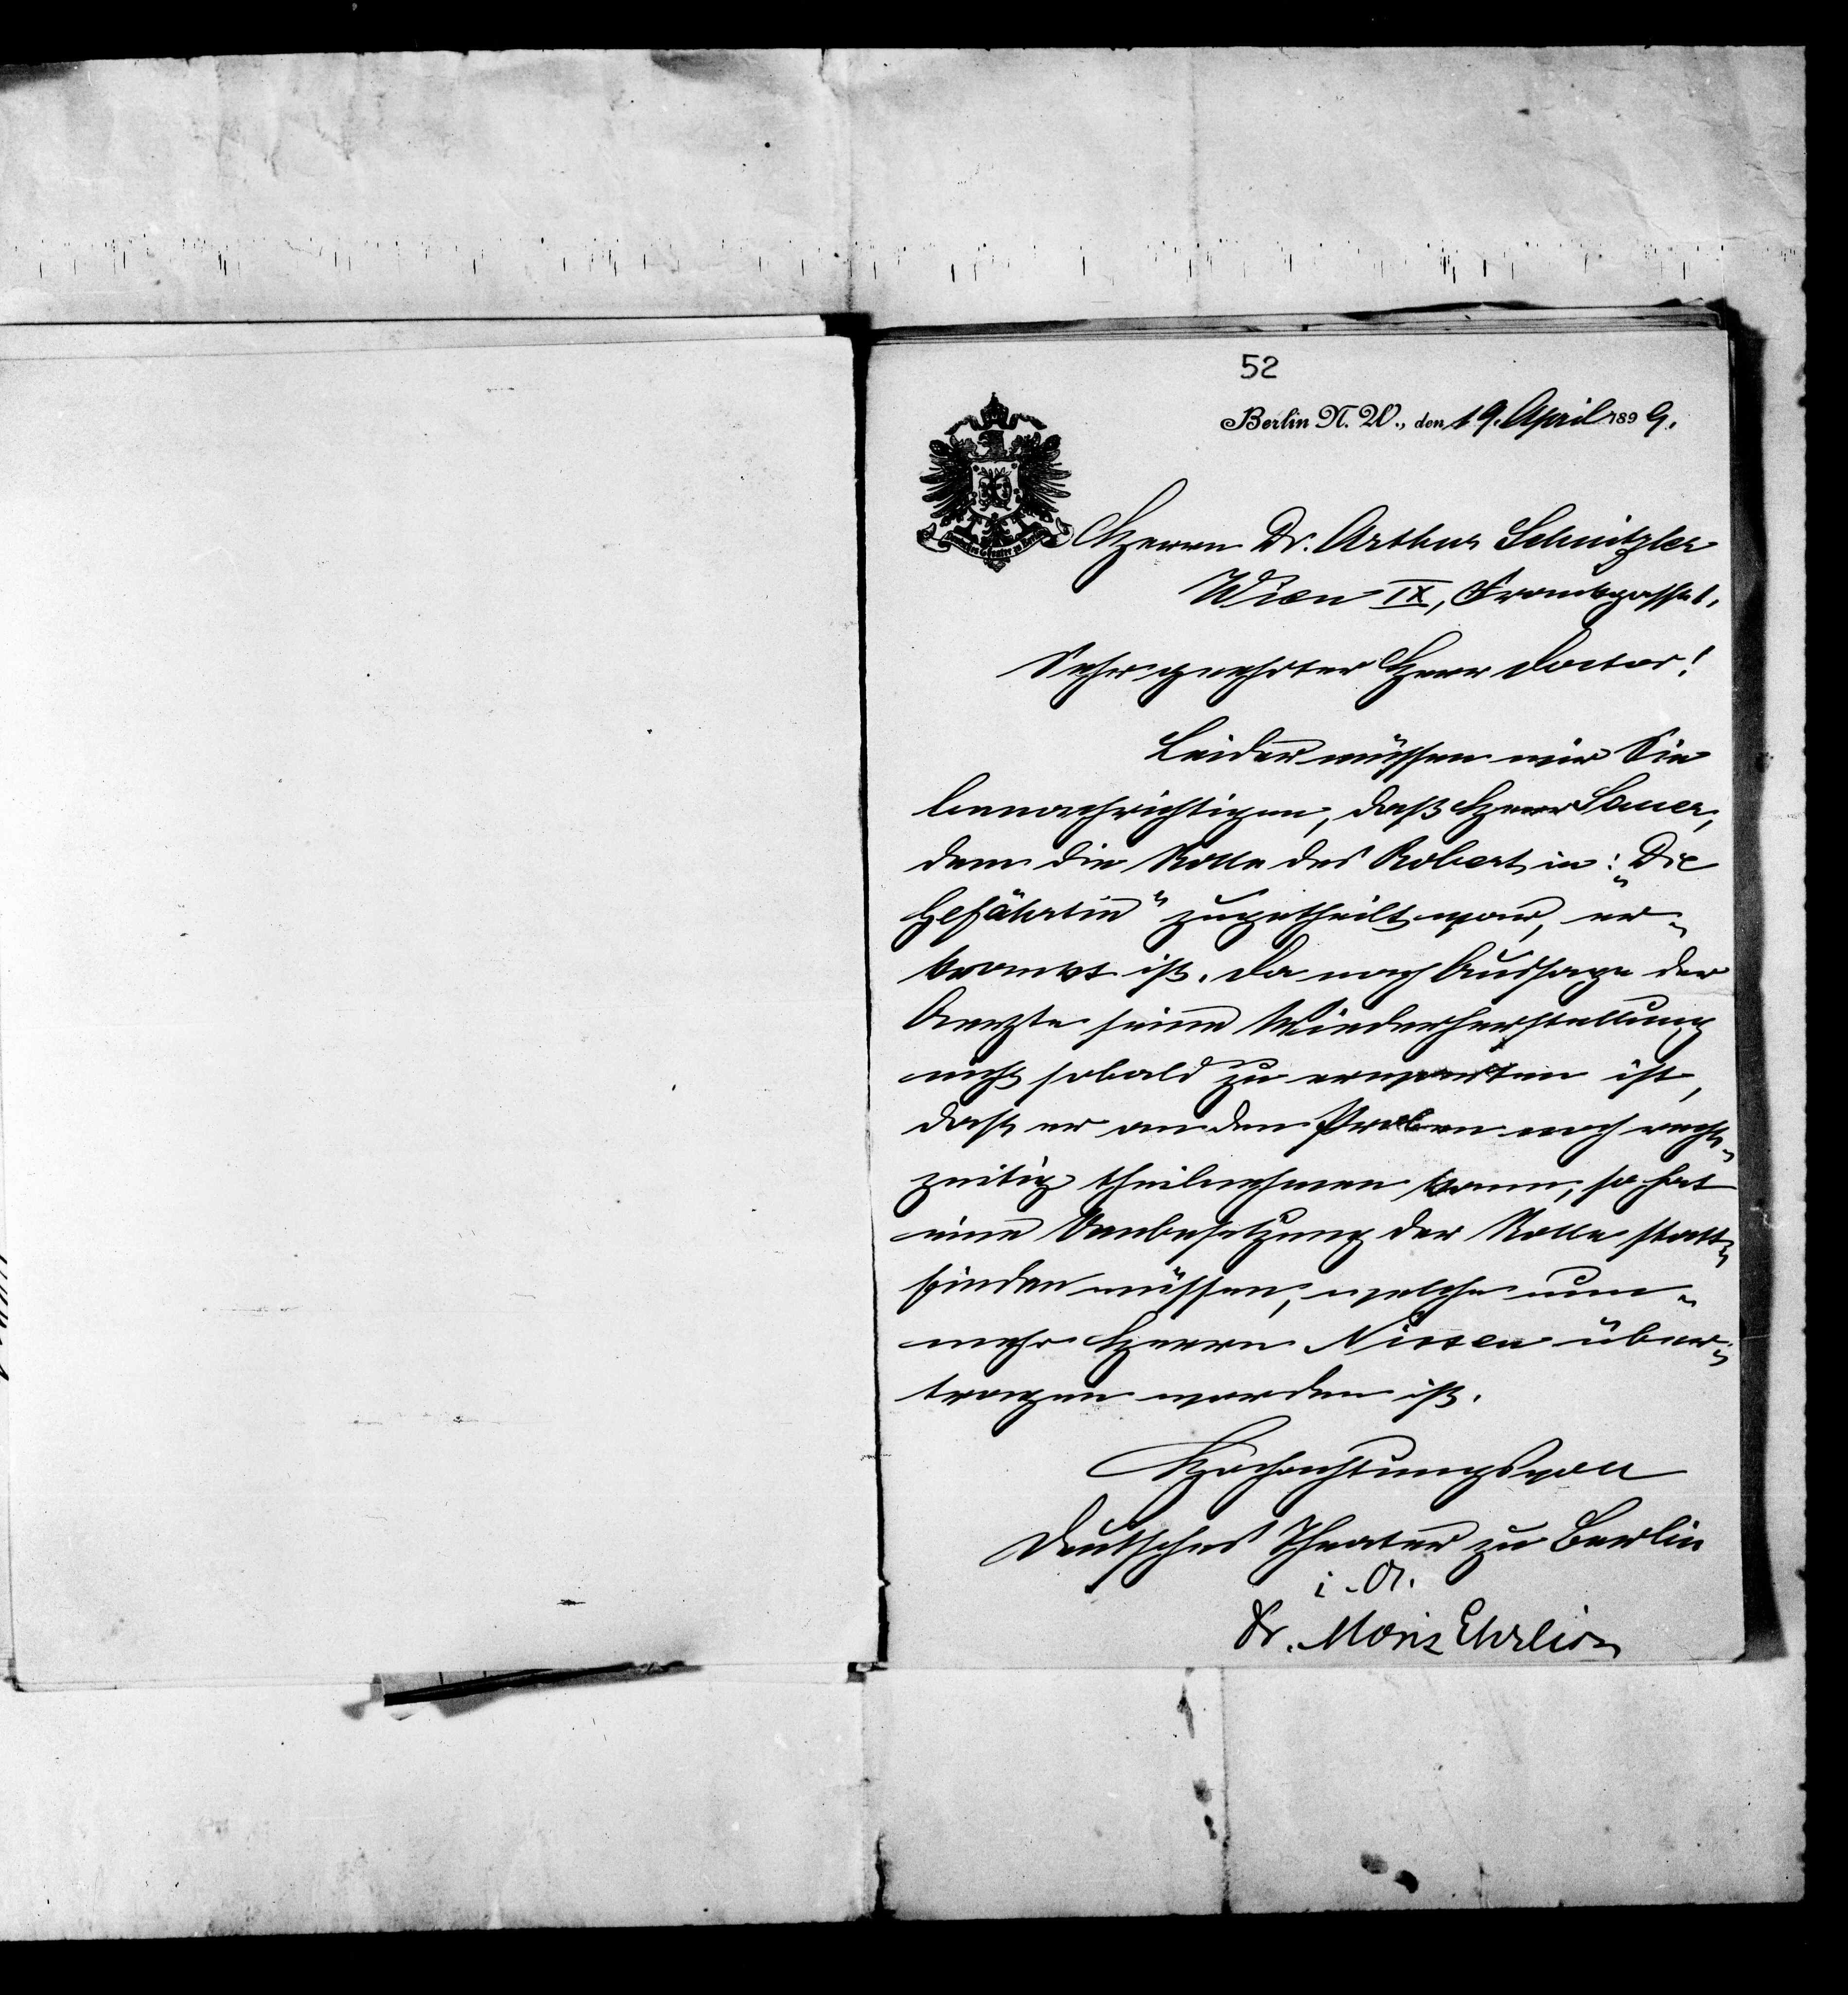 52
Berlin N. W., den 19. April 1899.
Deutsches Theater zu Berlin
Herrn Dr. Arthur Schnitzler
Wien IX, Frankgasse 1.
Sehr geehrter Herr Doctor!
Leider müssen wir Sie
benachrichtigen, daß Herr Sauer,
dem die Rolle des Robert in: „Die
Gefährtin“ zugetheilt war, er-
krankt ist. Da nach Aussage der
Aerzte seine Wiederherstellung
nicht sobald zu erwarten ist,
daß er an den Proben noch recht-
zeitig theilnehmen kann, so hat
eine Neubesetzung der Rolle statt-
finden müssen, welche nun-
mehr Herrn Nissen über-
tragen worden ist.
Hochachtungsvoll
Deutsches Theater zu Berlin
i. A.
Dr. Moriz Ehrlich